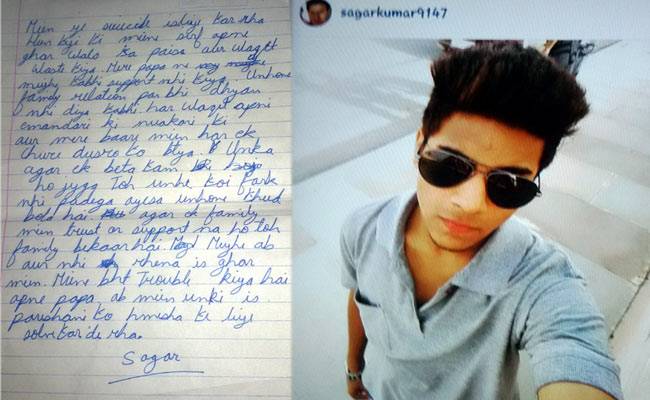 Mein ye suicide isliye kar rha
hun kyi ki mine sirf apne
ghar walo ka paisa aur waqt
waste kiya. Mere papa ne
mujhe kabhi support nhi kiya. Unhone
family relation par bhi dhyan
nhi diya kabhi. har waqt apni
emandari ki nuakari ki
aur mere baare mein har ek
dusro ko btya. Unka
agar ek beta kam
ho jyga toh unhe koi fark
nhi padega ayesa unhone khud
bola hai agar ek family
mein trust or support na ho toh
family bekaar hai. Mujhe ab
aur nhi rhena is ghar
mein. Mine bht Trouble kiya hai
apne papa, ab mein unki is
pareshani ko hmesha ke liye
solve kar de rha.
Sagar
sagarkumar9147